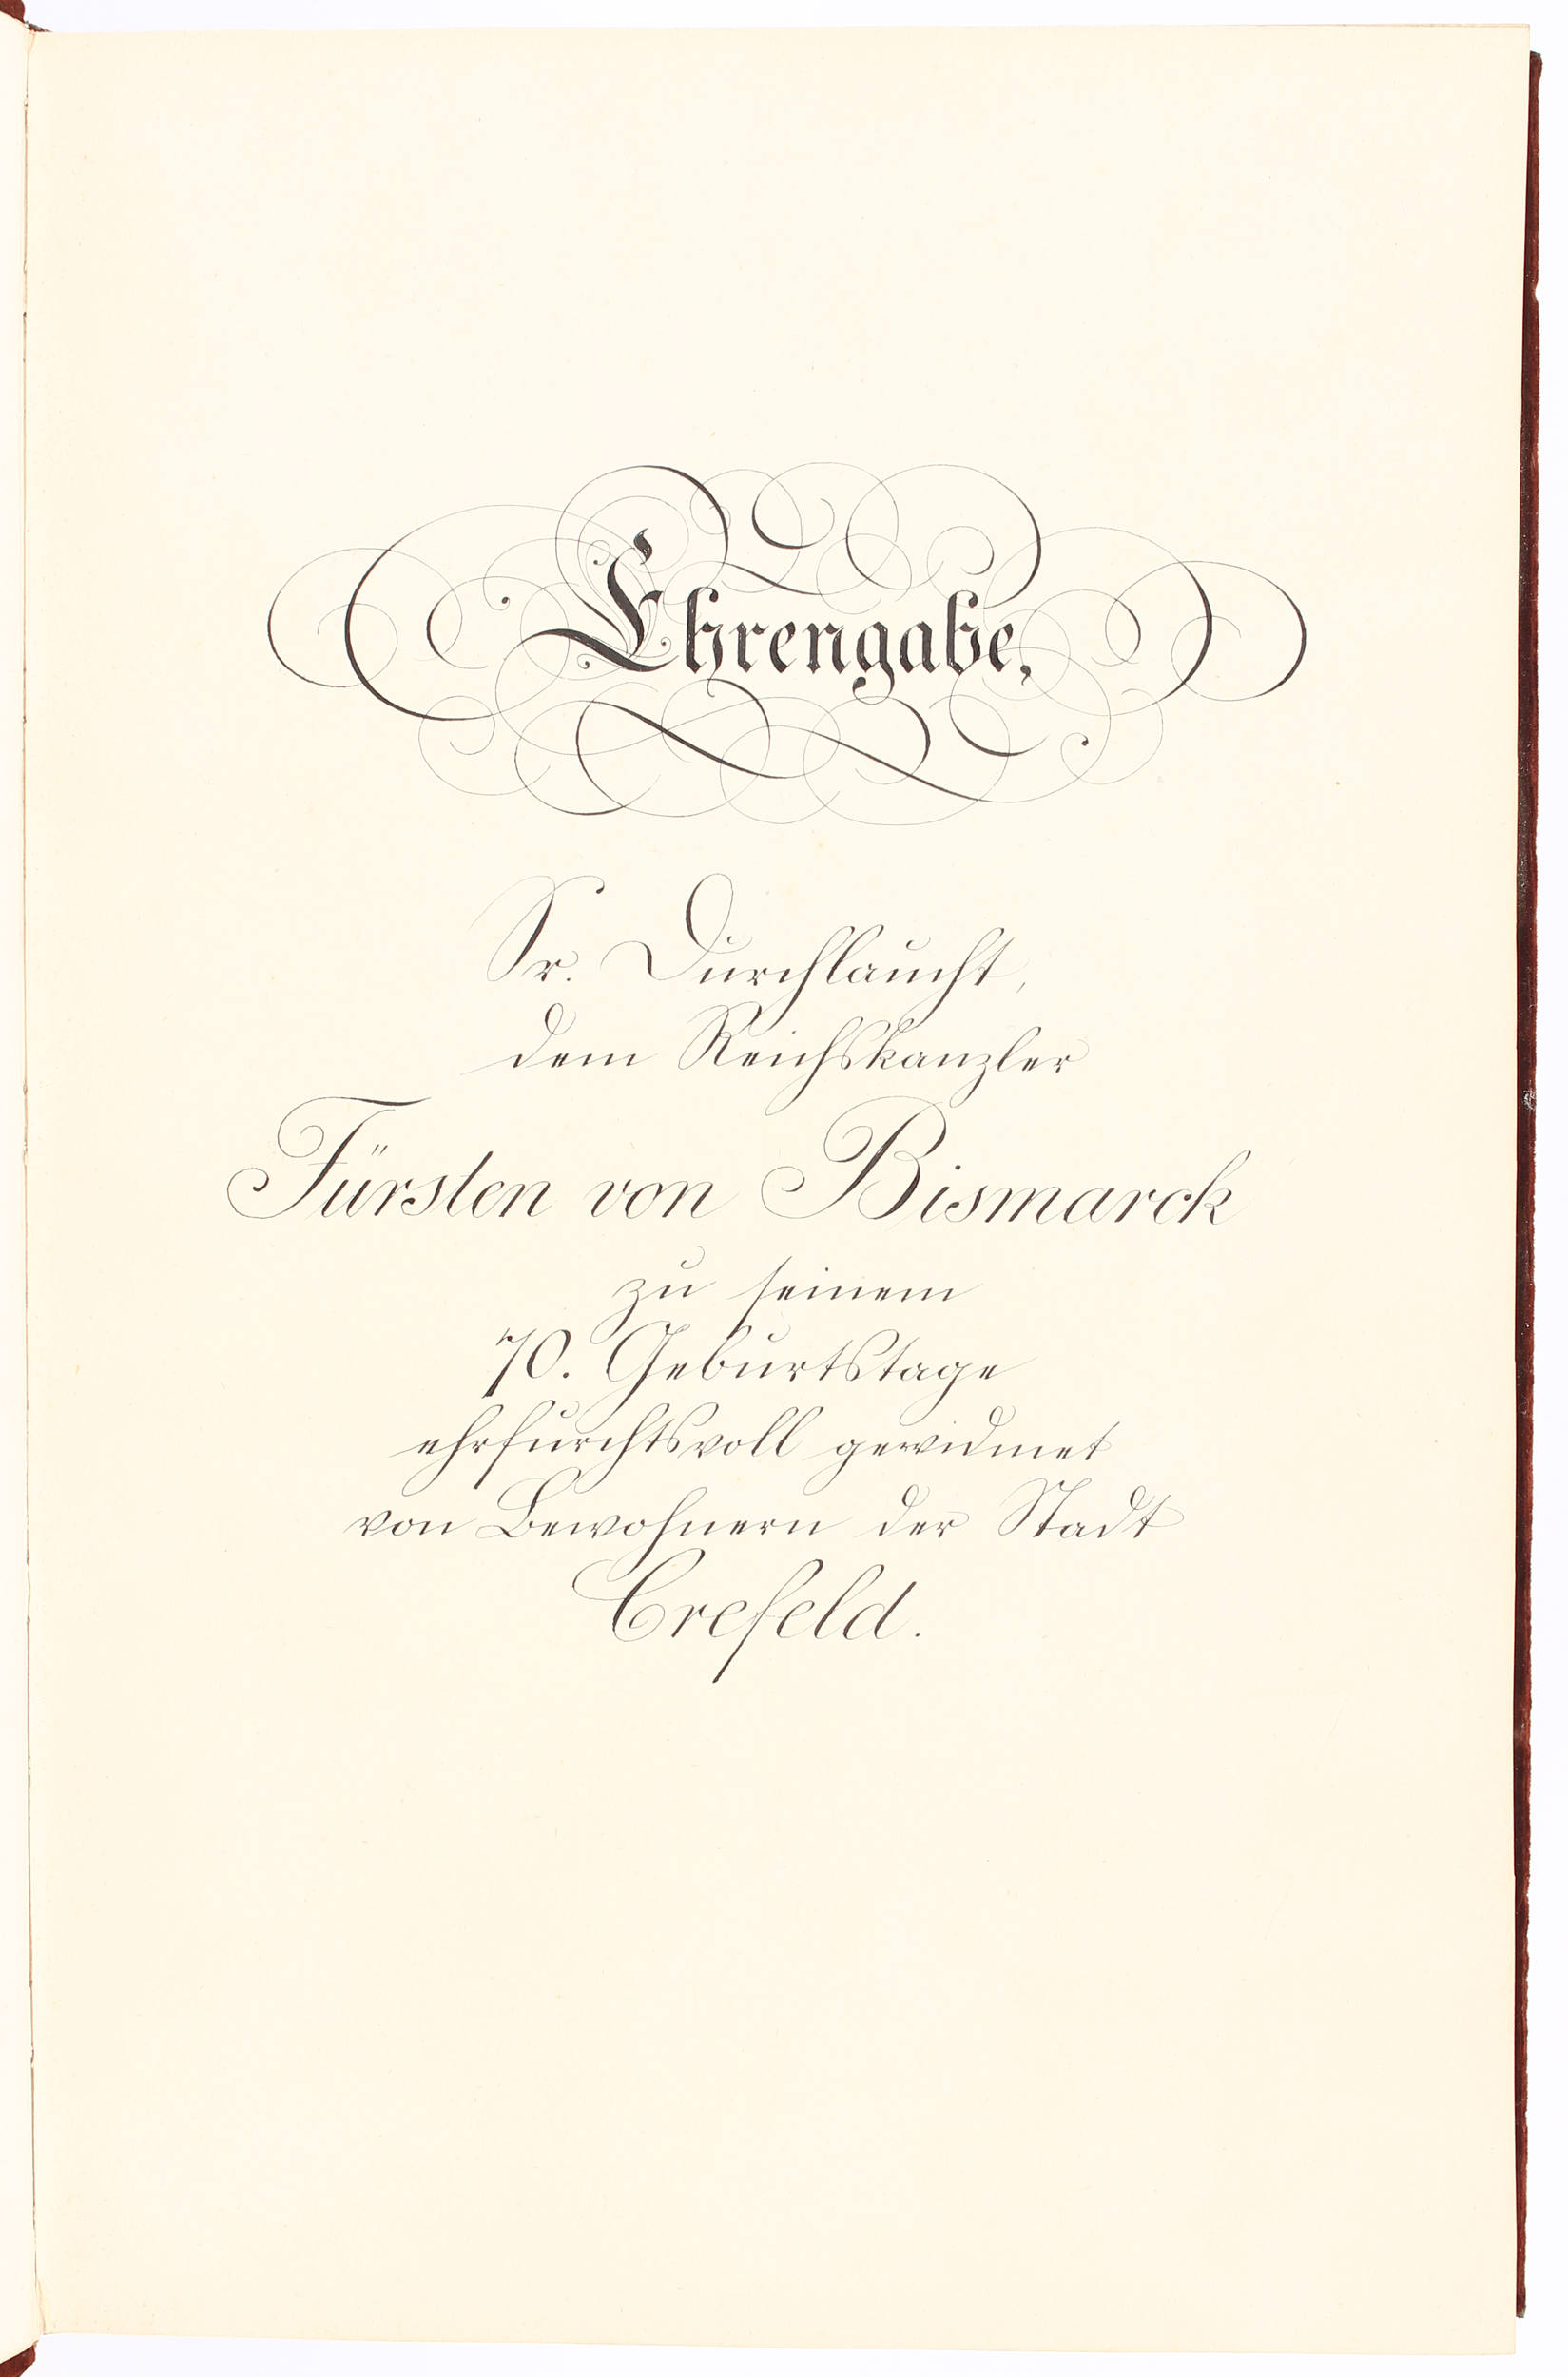 Ehrengabe,
Sr. Durchlaucht,
dem Reichskanzler
Fürsten von Bismarck
zu seinem
70. Geburtstage
ehrfurchtsvoll gewidmet
von Bewohnern der Stadt
Crefeld.